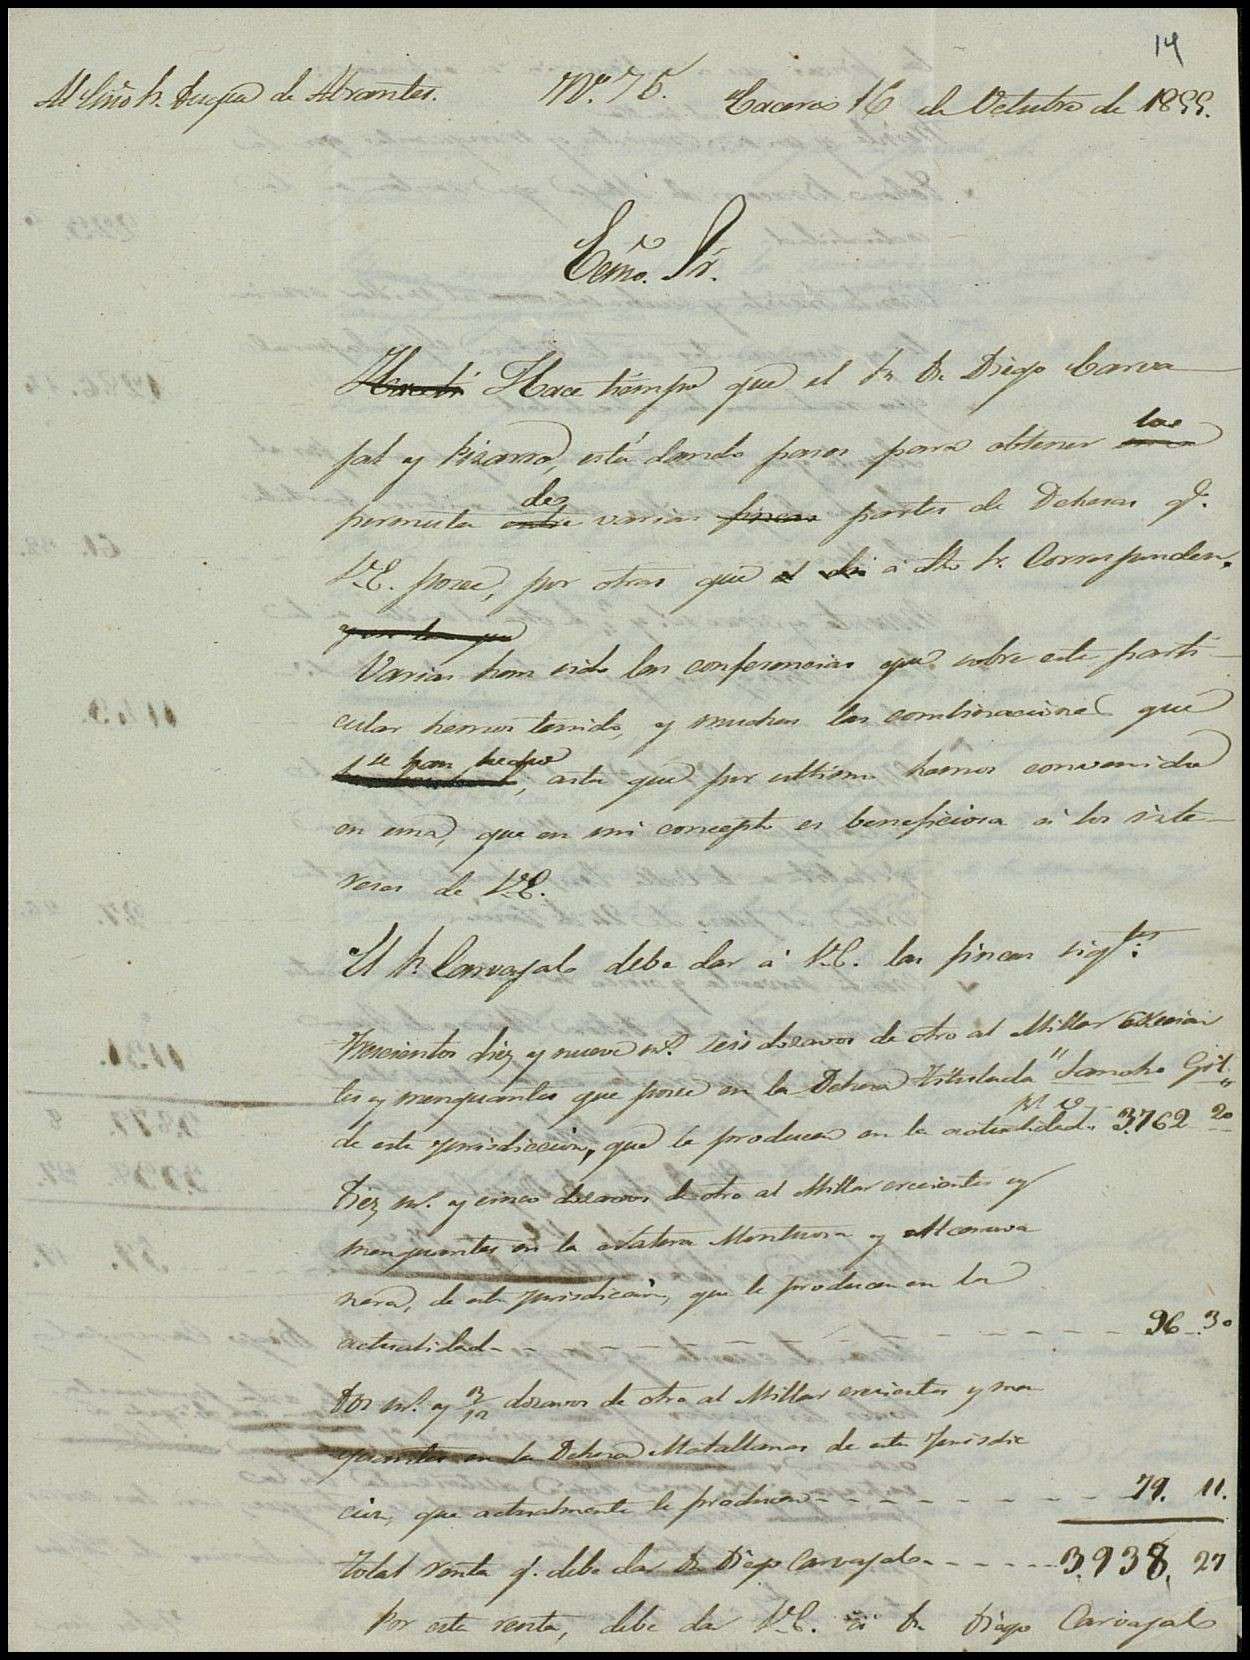 14
Al Exmo Sr. Duque de Abrantes. Nº. 75. Caceres 16 de Octubre de 1855.
Exmo. Sr.
Hace tiempo que el Sr. Dn. Diego Carva
jal y Pizarro, está dando pasos para obtener la
permuta de varias partes de Dehesas q.e
V.E. posee, por otras que á dho Sr. Corresponden.
Varias han sido las conferencias que sobre este parti-
cular hemos tenido, y muchas las combinaciones que
se han hecho, asta que por ultimo hemos convenido
en una, que en mi concepto es beneficiosa á los inte-
reses de V.E.
El Sr. Carvajal debe dar á V.E. las fincas sigtes.
Trescientos diez y nueve ms. seis dozavos de otro al Millar crecien
tes y menguantes que posee en la Dehesa titulada "Sancho Gil"
de esta jurisdiccion, que le producen en la actualidad Rs. vn. 3.762 20
Diez ms. y cinco dozavos de otro al Millar crecientes y
menguantes en la Natera Montuosa y Alcarava
nera, de esta jurisdicion, que le producen en la
actualidad 96 30
Dos ms. y 3/12 dozavos de otro al Millar crecientes y men
guantes en la Dehesa Matallanas de esta Jurisdic
cion, que actualmente le producen 79. 11.
Total renta q.e debe dar Dn. Diego Carvajal 3.938, 27
Por esta renta, debe dar V.E. á Dn. Diego Carvajal